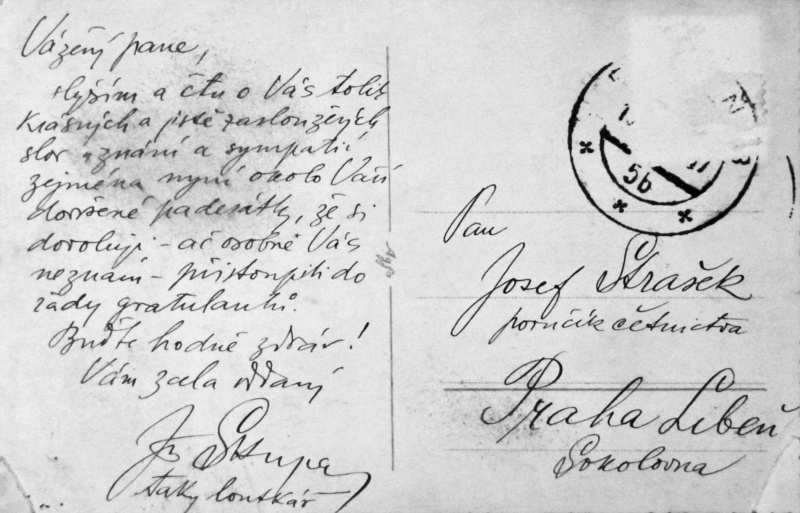 Vážený pane,
slyším a čtu o Vás tolik
krásných a jistě zasloužených
slov uznání a sympatií
zejména nyní okolo Vaší
dovršené padesátky, že si
dovoluji - ač osobně Vás
neznám - přistoupiti do
řady gratulantů.
Buďte hodně zdráv!
Vám zcela oddaný
Jos Skupa
taky loutkář
Agfa
5b
Pan
Josef Strašek
poručík četnictva
Praha Libeň
Sokolovna